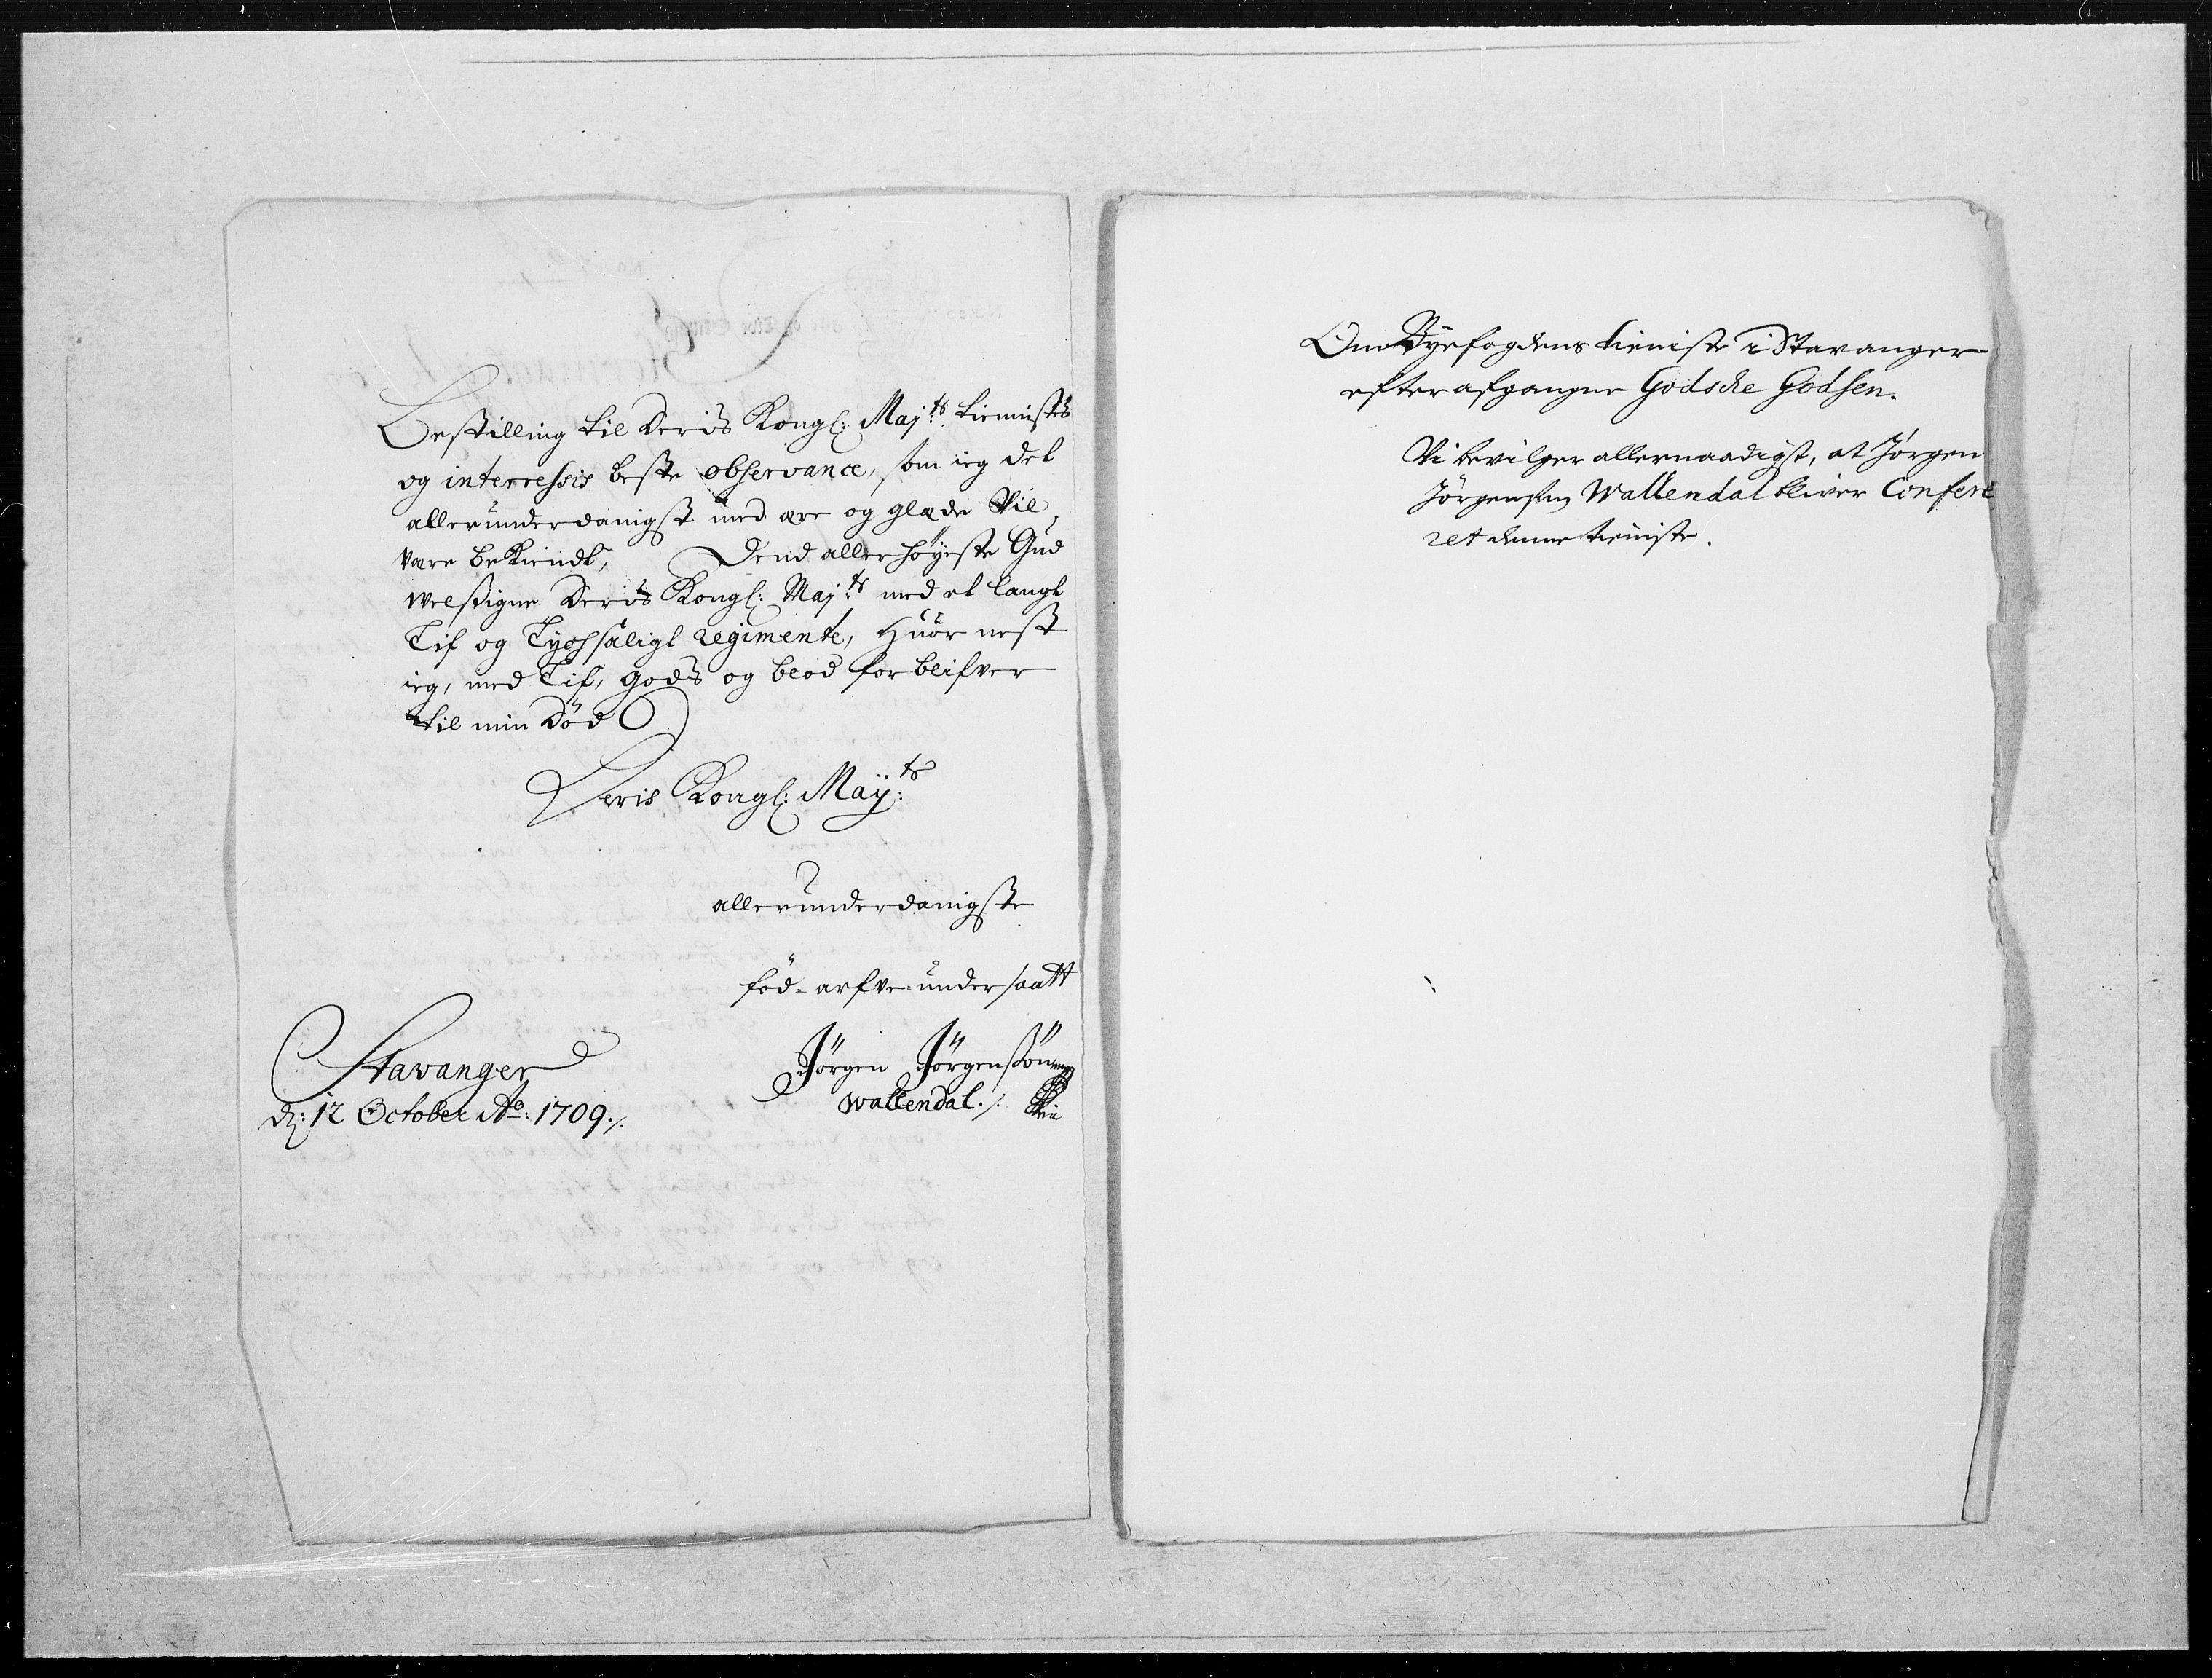 Bestilling til Deris Kongl: Maj:ts tiennistes
og interressis beste observance, som ieg det
allerunderdanigst med ære og glæde Vil
være bekiendt, Dend allerhöyeste Gud
welsigne Deris Kongl: Maj:ts med et langt
Lif og Lychsaligt regimente, Huor nest
ieg, med Lif, gods og blod forblifver
til min död
Deris Kongl: Maÿ:ts
allerunderdanigste
föd-arfve-undersaatt
Stavanger
d: 12 October Ao: 1709./.
Jörgen Jörgenssön
Wallendal./.
Om Byefogdens tieniste i Stavanger
efter afgangne Godsche Godsen.
Vi bevilger allernaadigst, at Jörgen
Jörgensen Wallendal bliver Confere
ret denne tieniste.